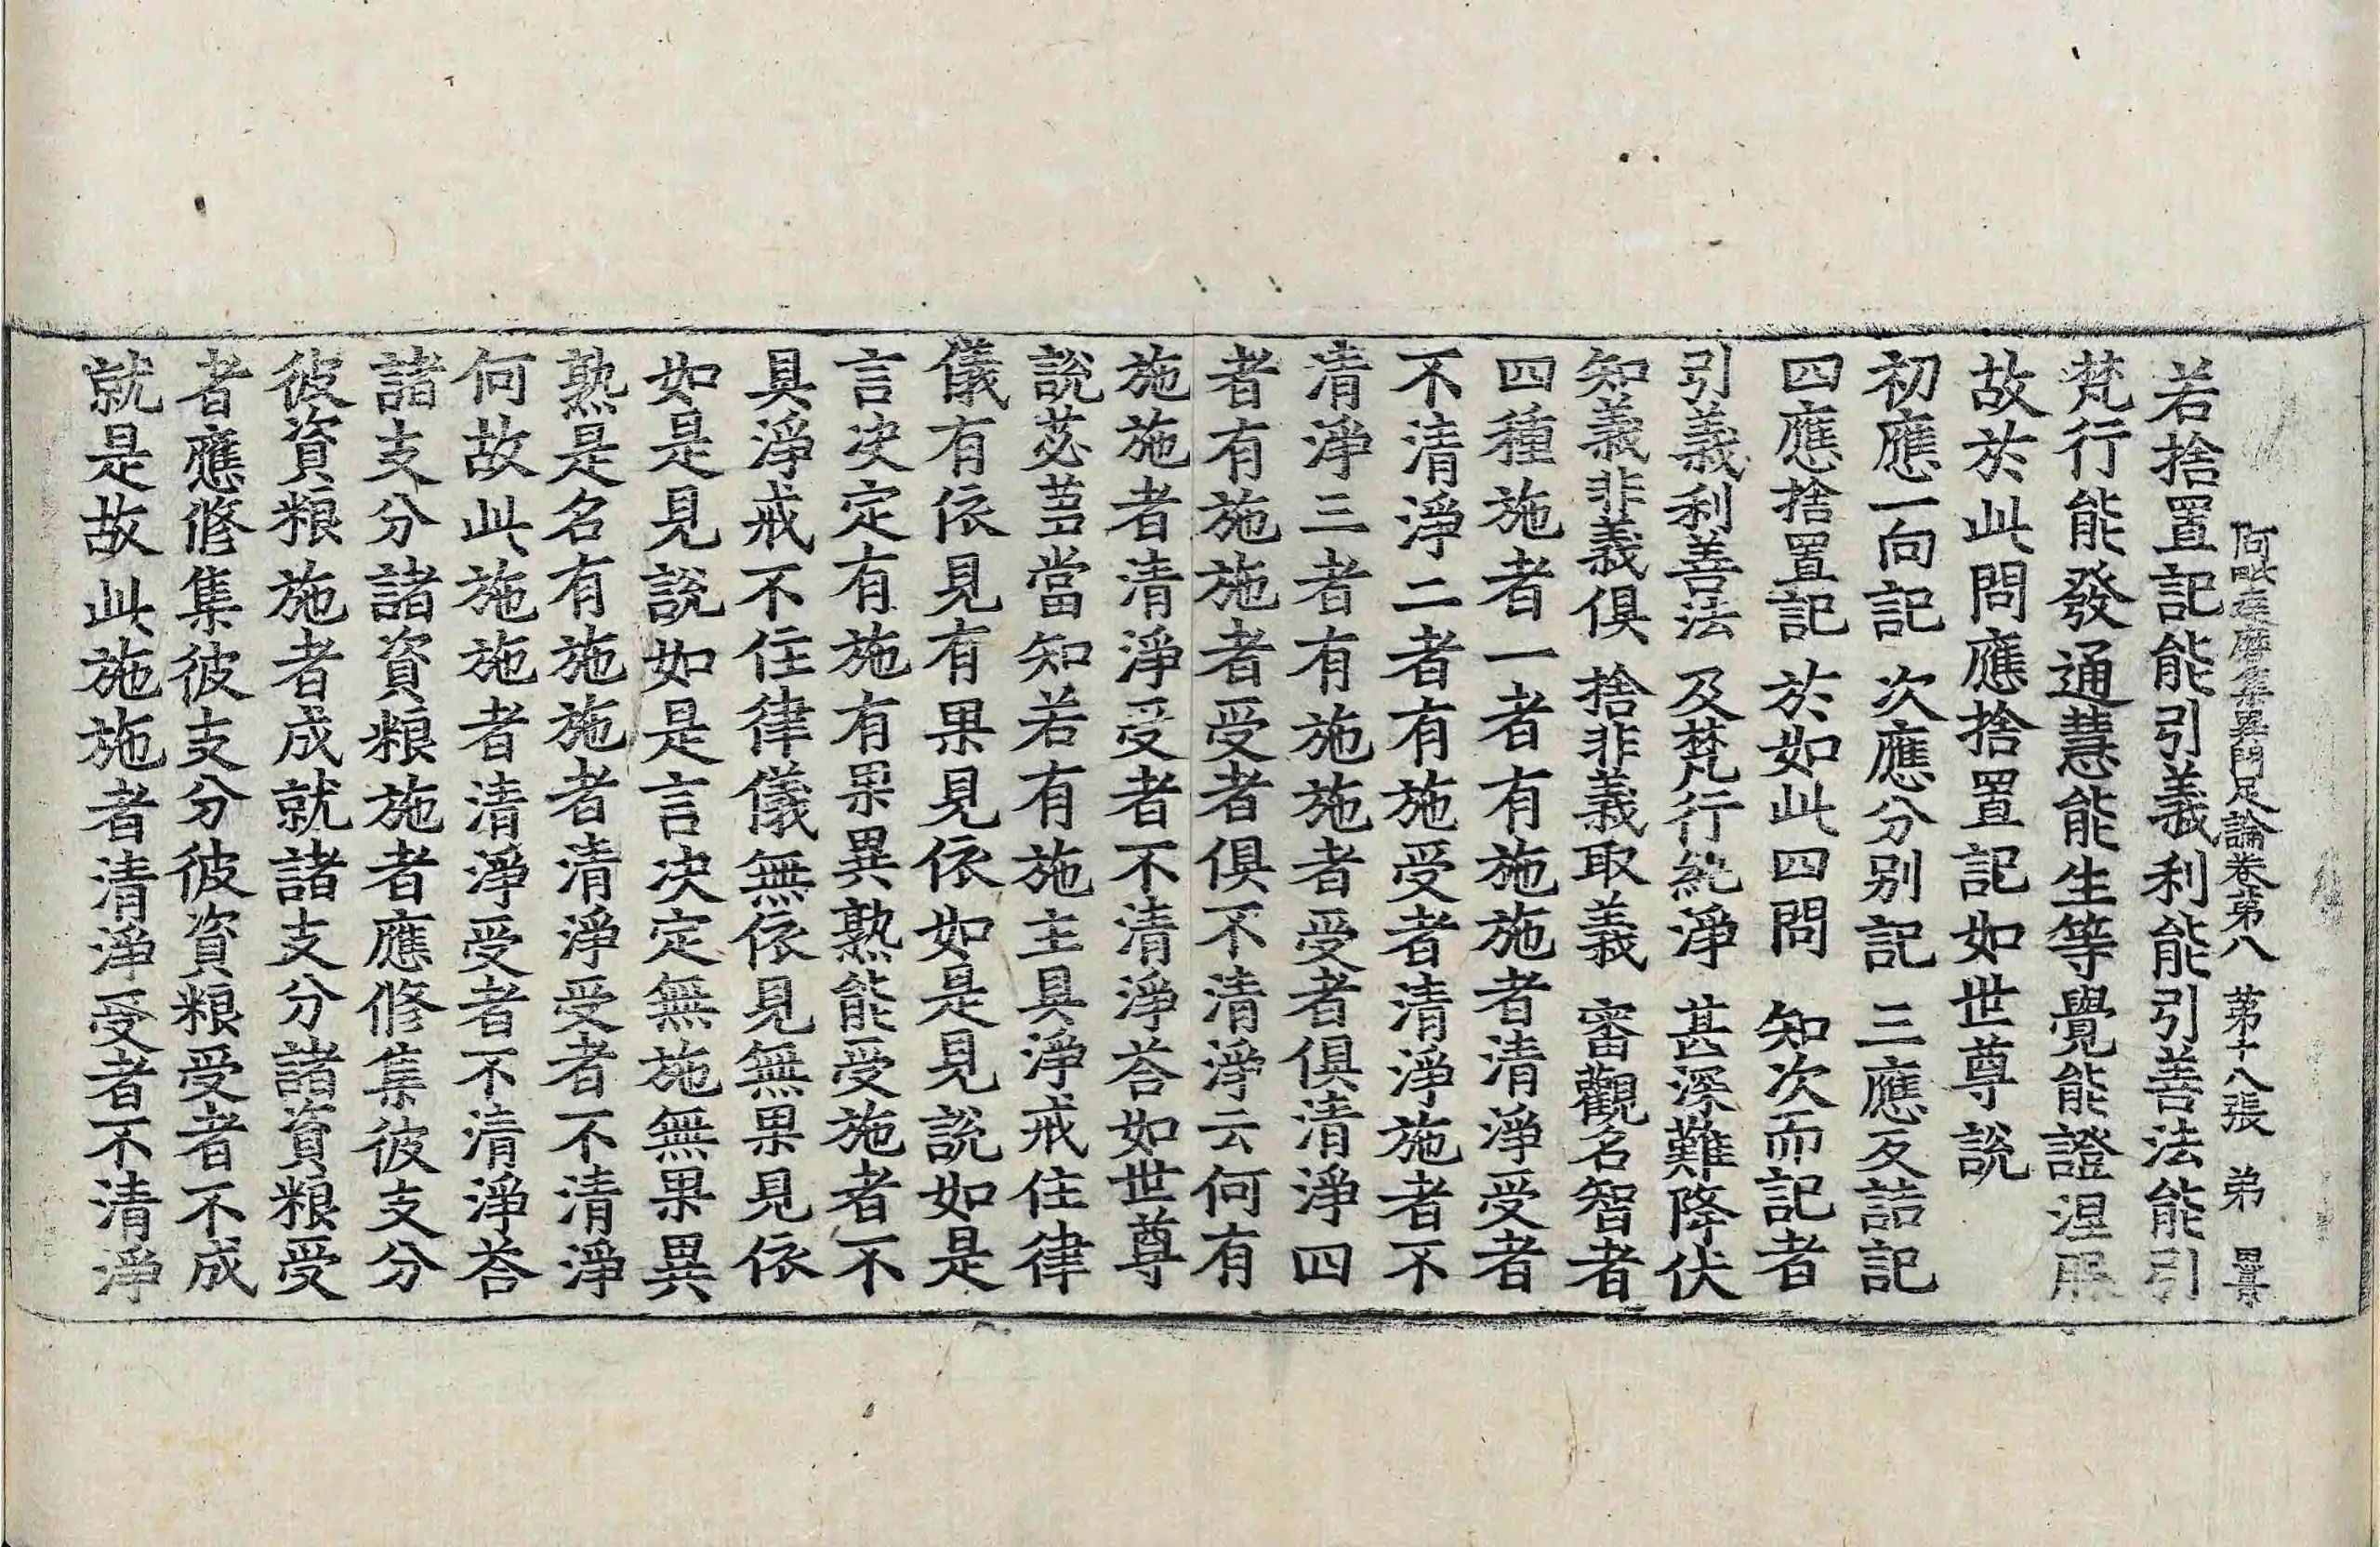 阿毗達磨集異門足論卷第八 第十八張 弟
若捨置記能引義利能引善法能引
梵行能發通慧能生等覺能證涅槃
故於此問應捨置記如世尊說
初應一向記 次應分別記 三應反詰記
四應捨置記 於如此四問 知次而記者
引義利善法 及梵行純淨 甚深難降伏
知義非義俱 捨非義取義 審觀名智者
四種施者一者有施施者清淨受者
不清淨二者有施受者清淨施者不
清淨三者有施施者受者俱清淨四
者有施施者受者俱不清淨云何有
施施者清淨受者不清淨荅如世尊
說苾蒭當知若有施主具淨戒住律
儀有依見有果見依如是見說如是
言决定有施有果異熟能受施者不
具淨戒不住律儀無依見無果見依
如是見說如是言决定無施無果異
熟是名有施施者清淨受者不清淨
何故此施施者清淨受者不清淨荅
諸支分諸資粮施者應修集彼支分
彼資粮施者成就諸支分諸資粮受
者應修集彼支分彼資粮受者不成
就是故此施施者清淨受者不清淨